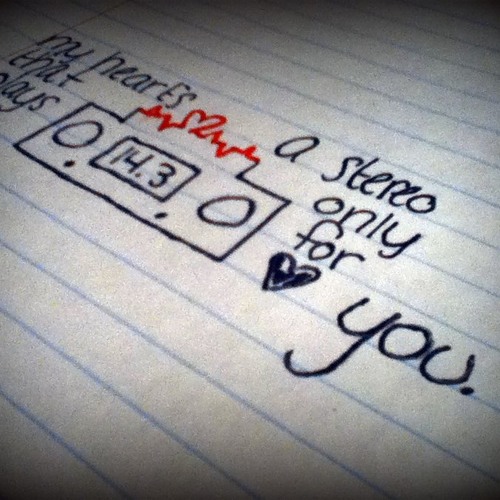 my hearts a stereo
that plays only
for
you.
14.3